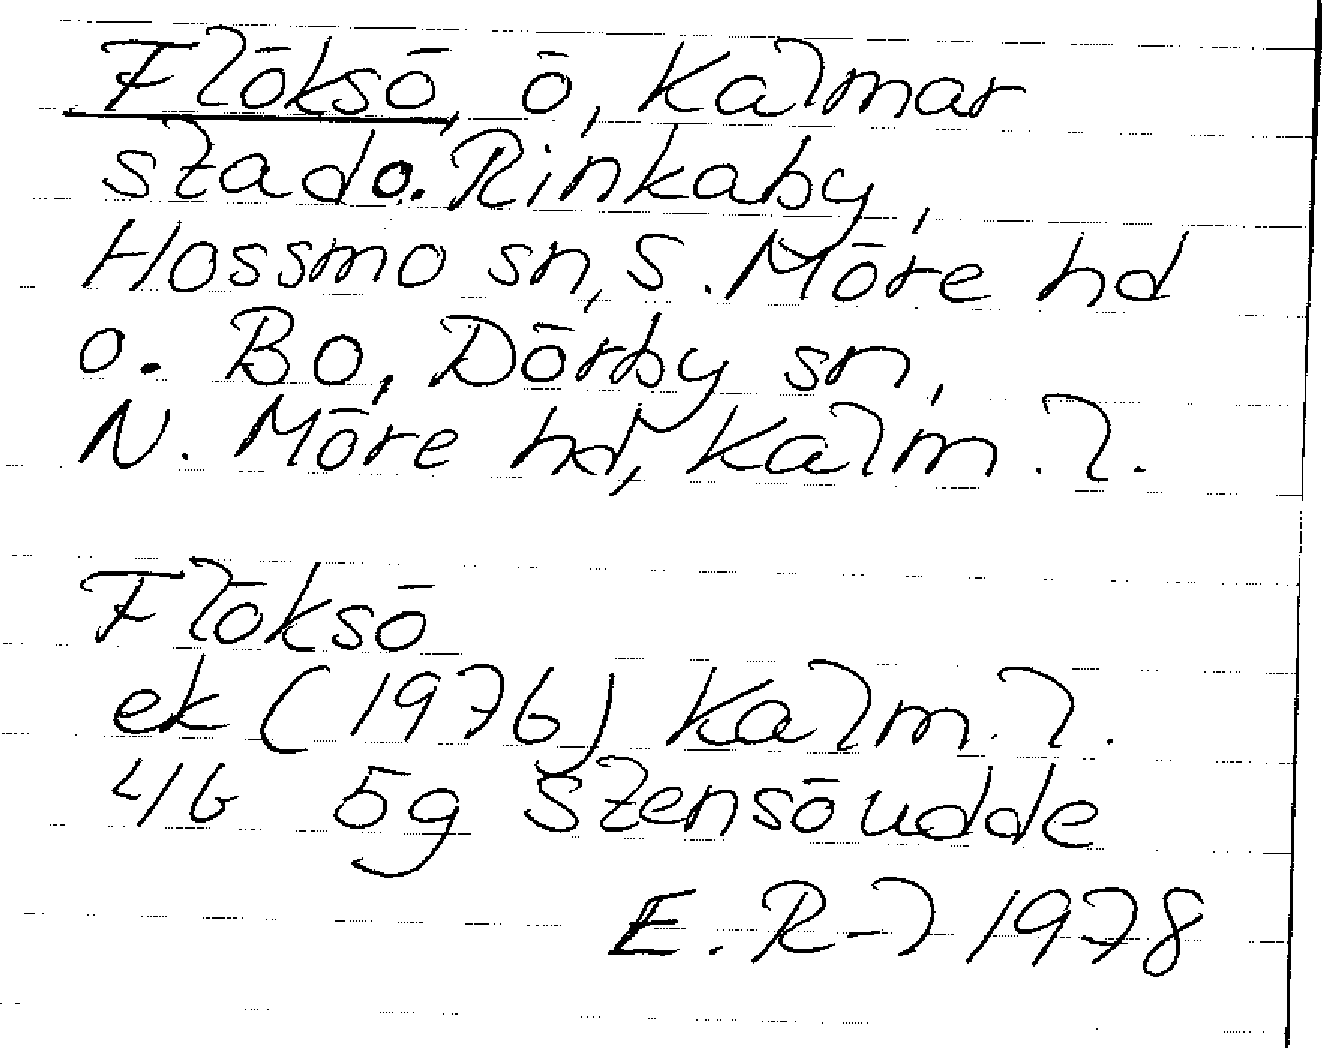 Flōksō, ō, Kalmar
stad o. Rinkaby,
Hossmo sn, S. Mōre hd
o. Bo, Dōrby sn,
N. Mōre hd, Kalm. l.
Flōksō
ek (1976) Kalm. l.
4G 5g Stensōudde
E. R-l 1978